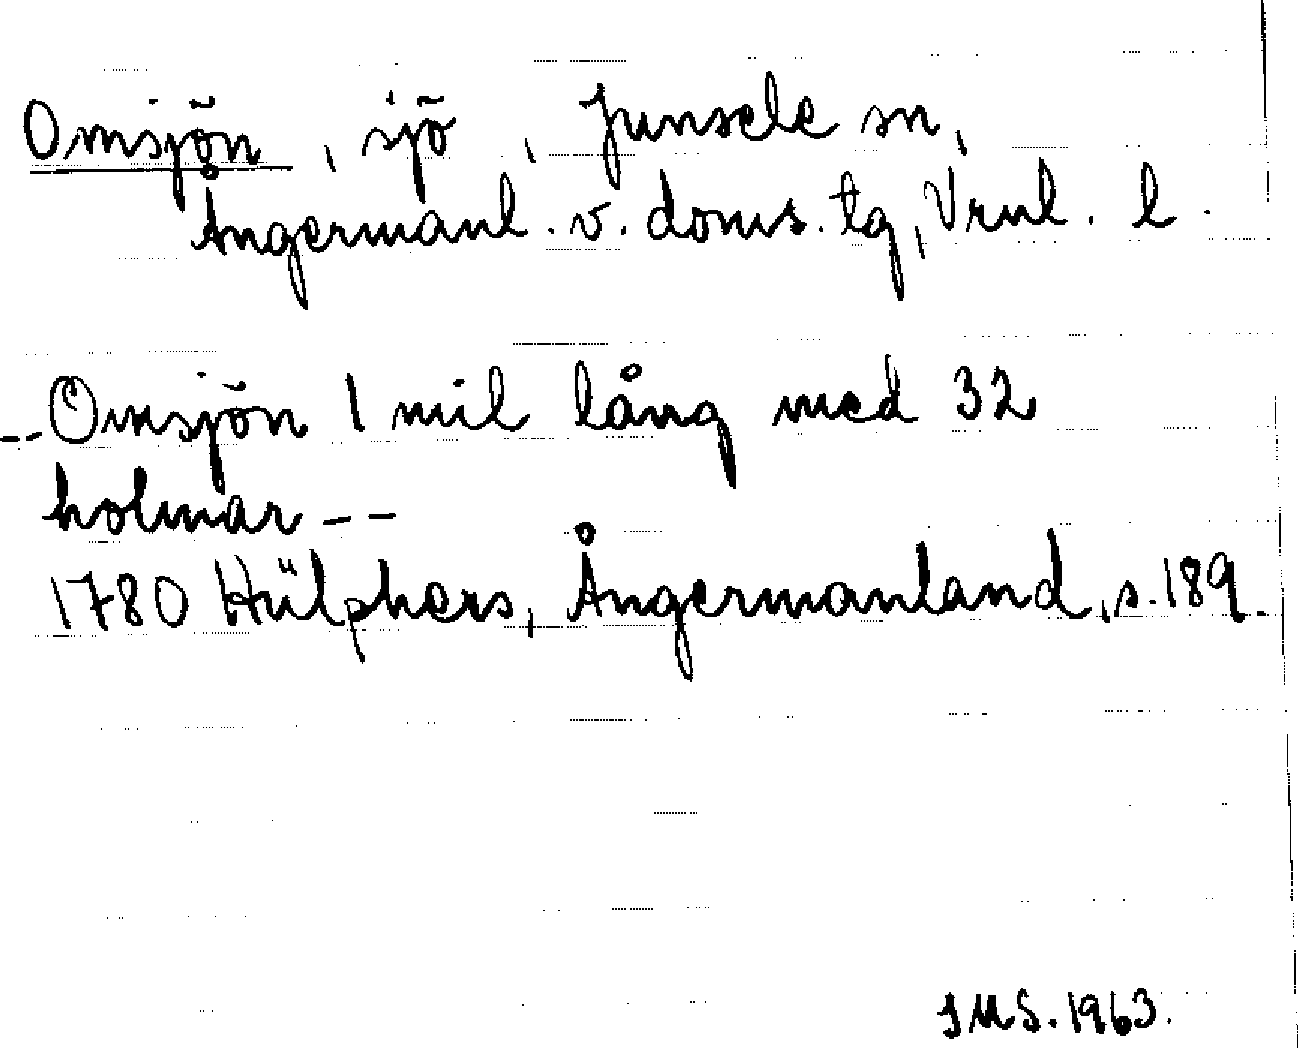 Omsjön, sjö, Junsele sn,
Ångermanl. v. doms. tg, Vrnl. l.
-- Omsjön 1 mil lång med 32
holmar --
1780 Hülphers, Ångermanland, s. 189.
JMS. 1963.